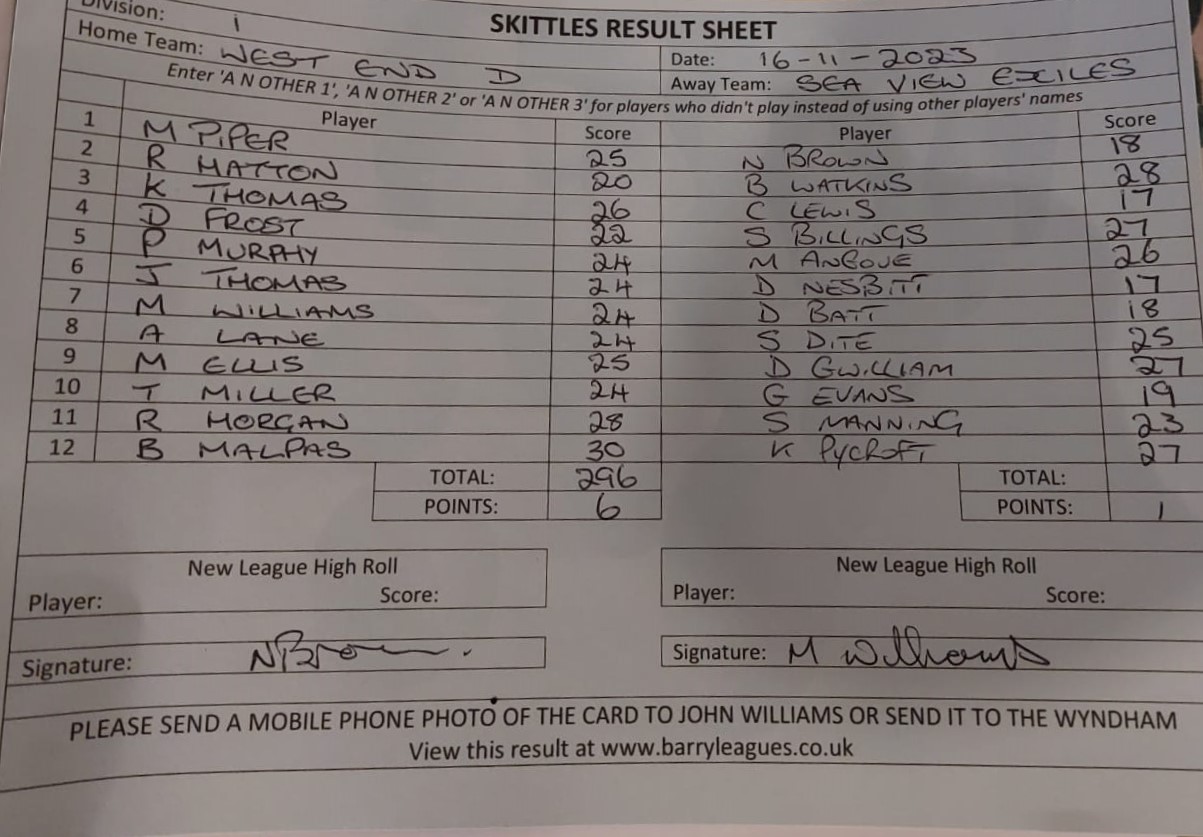 Division: 1
SKITTLES RESULT SHEET
Home Team: WEST END D
Date: 16-11-2023
Away Team: SEA VIEW EXILES
Enter 'A N OTHER 1', 'A N OTHER 2' or 'A N OTHER 3' for players who didn't play instead of using other players' names
Player Score Player Score
1 M PIPER 25 N BROWN 18
2 R HATTON 20 B WATKINS 28
3 K THOMAS 26 C LEWIS 17
4 D FROST 22 S BILLINGS 27
5 P MURPHY 24 M ANGOVE 26
6 J THOMAS 24 D NESBITT 17
7 M WILLIAMS 24 D BATT 18
8 A LANE 24 S DITE 25
9 M ELLIS 25 D GWILLIAM 27
10 T MILLER 24 G EVANS 19
11 R MORGAN 28 S MANNING 23
12 B MALPAS 30 K PYCROFT 27
TOTAL: 296 TOTAL:
POINTS: 6 POINTS: 1
New League High Roll
Player: Score:
New League High Roll
Player: Score:
Signature: N Brown
Signature: M Williams
PLEASE SEND A MOBILE PHONE PHOTO OF THE CARD TO JOHN WILLIAMS OR SEND IT TO THE WYNDHAM
View this result at www.barryleagues.co.uk